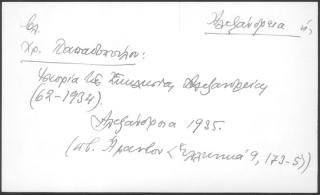 Ἀλεξάνδρεια
Βλ.
Χρ. Παπαδοπούλου:
Ἱστορία τῆς Ἐκκλησίας Ἀλεξανδρείας
(62-1934).
Ἀλεξάνδρεια 1935.
Ἑλληνικά 9, 173-5))